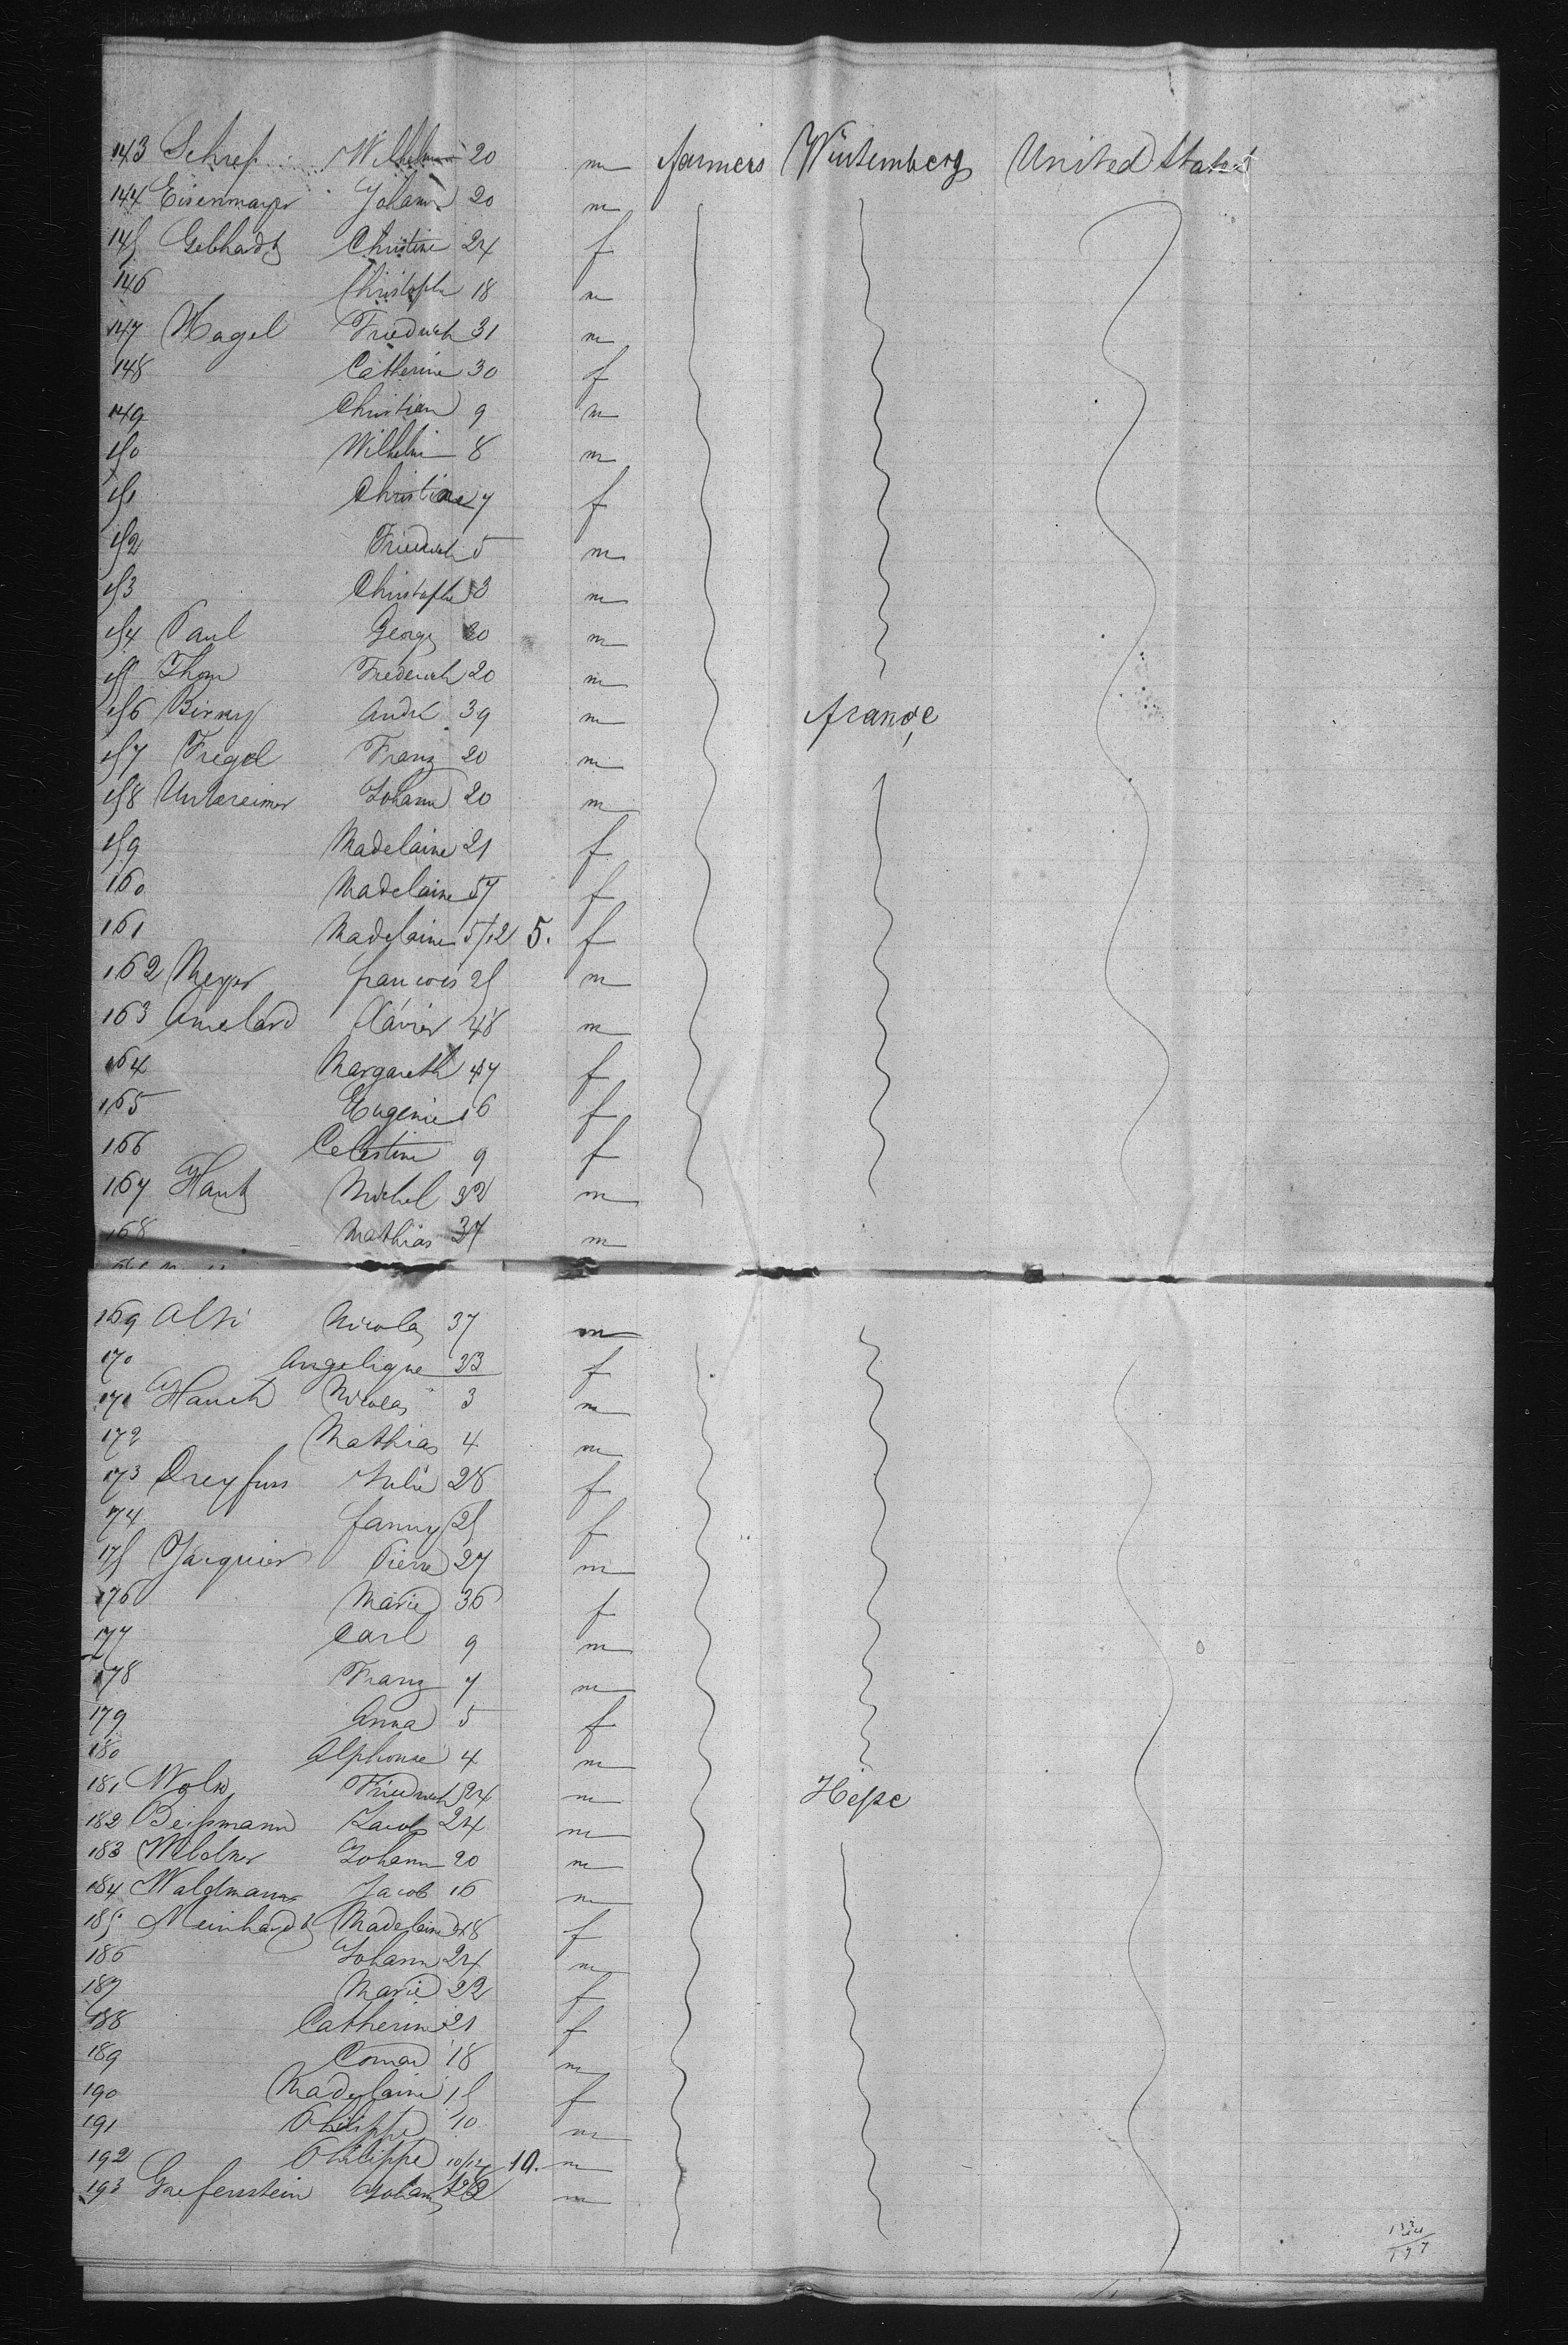 143 Schref Wilhelm 20 m farmers Würtemberg United States
144 Eisenmayer Johann 20 m
145 Gebhardt Christine 24 f
146 Christoph 18 m
147 Nagel Friedrich 31 m
148 Catherine 30 f
149 Christian 9 m
150 Wilhelm 8 m
151 Christine 7 f
152 Friedrich 5 m
153 Christophe 3 m
154 Paul George 20 m
155 Thom Frederich 20 m
156 André 39 m france
157 Fregel Franz 20 m
158 Johann 20 m
159 Madelaine 21 f
160 Madelaine 57 f
161 Madelaine 5/12 5. f
162 Meyer francois 25 m
163 Amelard Xavier 48 m
164 Margareth 47 f
165 Eugenie 16 f
166 Celestine 9 f
167 Hautz Michel 32 m
168 Mathias 37 m
169 Nicolas 37 m
170 Angelique 33 f
171 Hauth Nicolas 3 m
172 Mathias 4 m
173 Dreyfuss Julie 28 f
174 fanny 25 f
175 Jacquier Pierre 27 m
176 Marie 36 f
177 Carl 9 m
178 Franz 7 m
179 Anna 5 f
180 Alphonse 4 m
181 Friedrich 24 m Hesse
182 Beissmann Jacob 24 m
183 Johann 20 m
184 Waldmann Jacob 16 m
185 Meinhardt Madelaine 48 f
186 Johann 24 m
187 Marie 22 f
188 Catherin 21 f
189 Conrad 18 m
190 Madelaine 15 f
191 Philippe 10 m
192 Philippe 10/12 10. m
193 Grefenstein Johann m